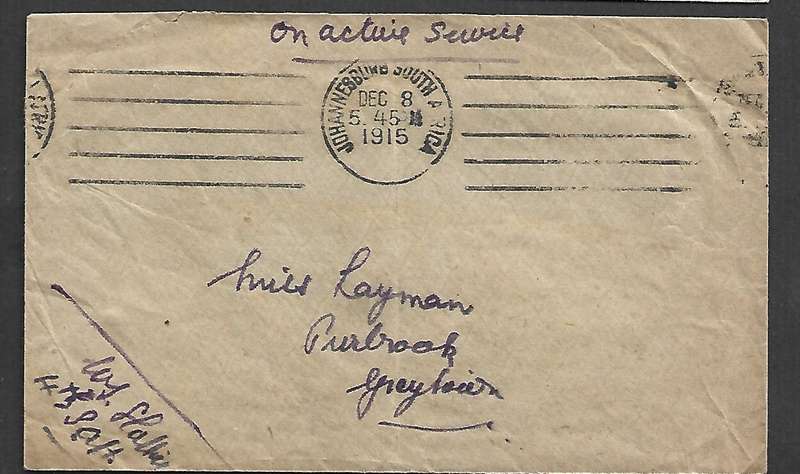 On active Service
JOHANNESBURG SOUTH AFRICA
DEC 8
5. 45
1915
Miss Layman
Purbrook
Greytown